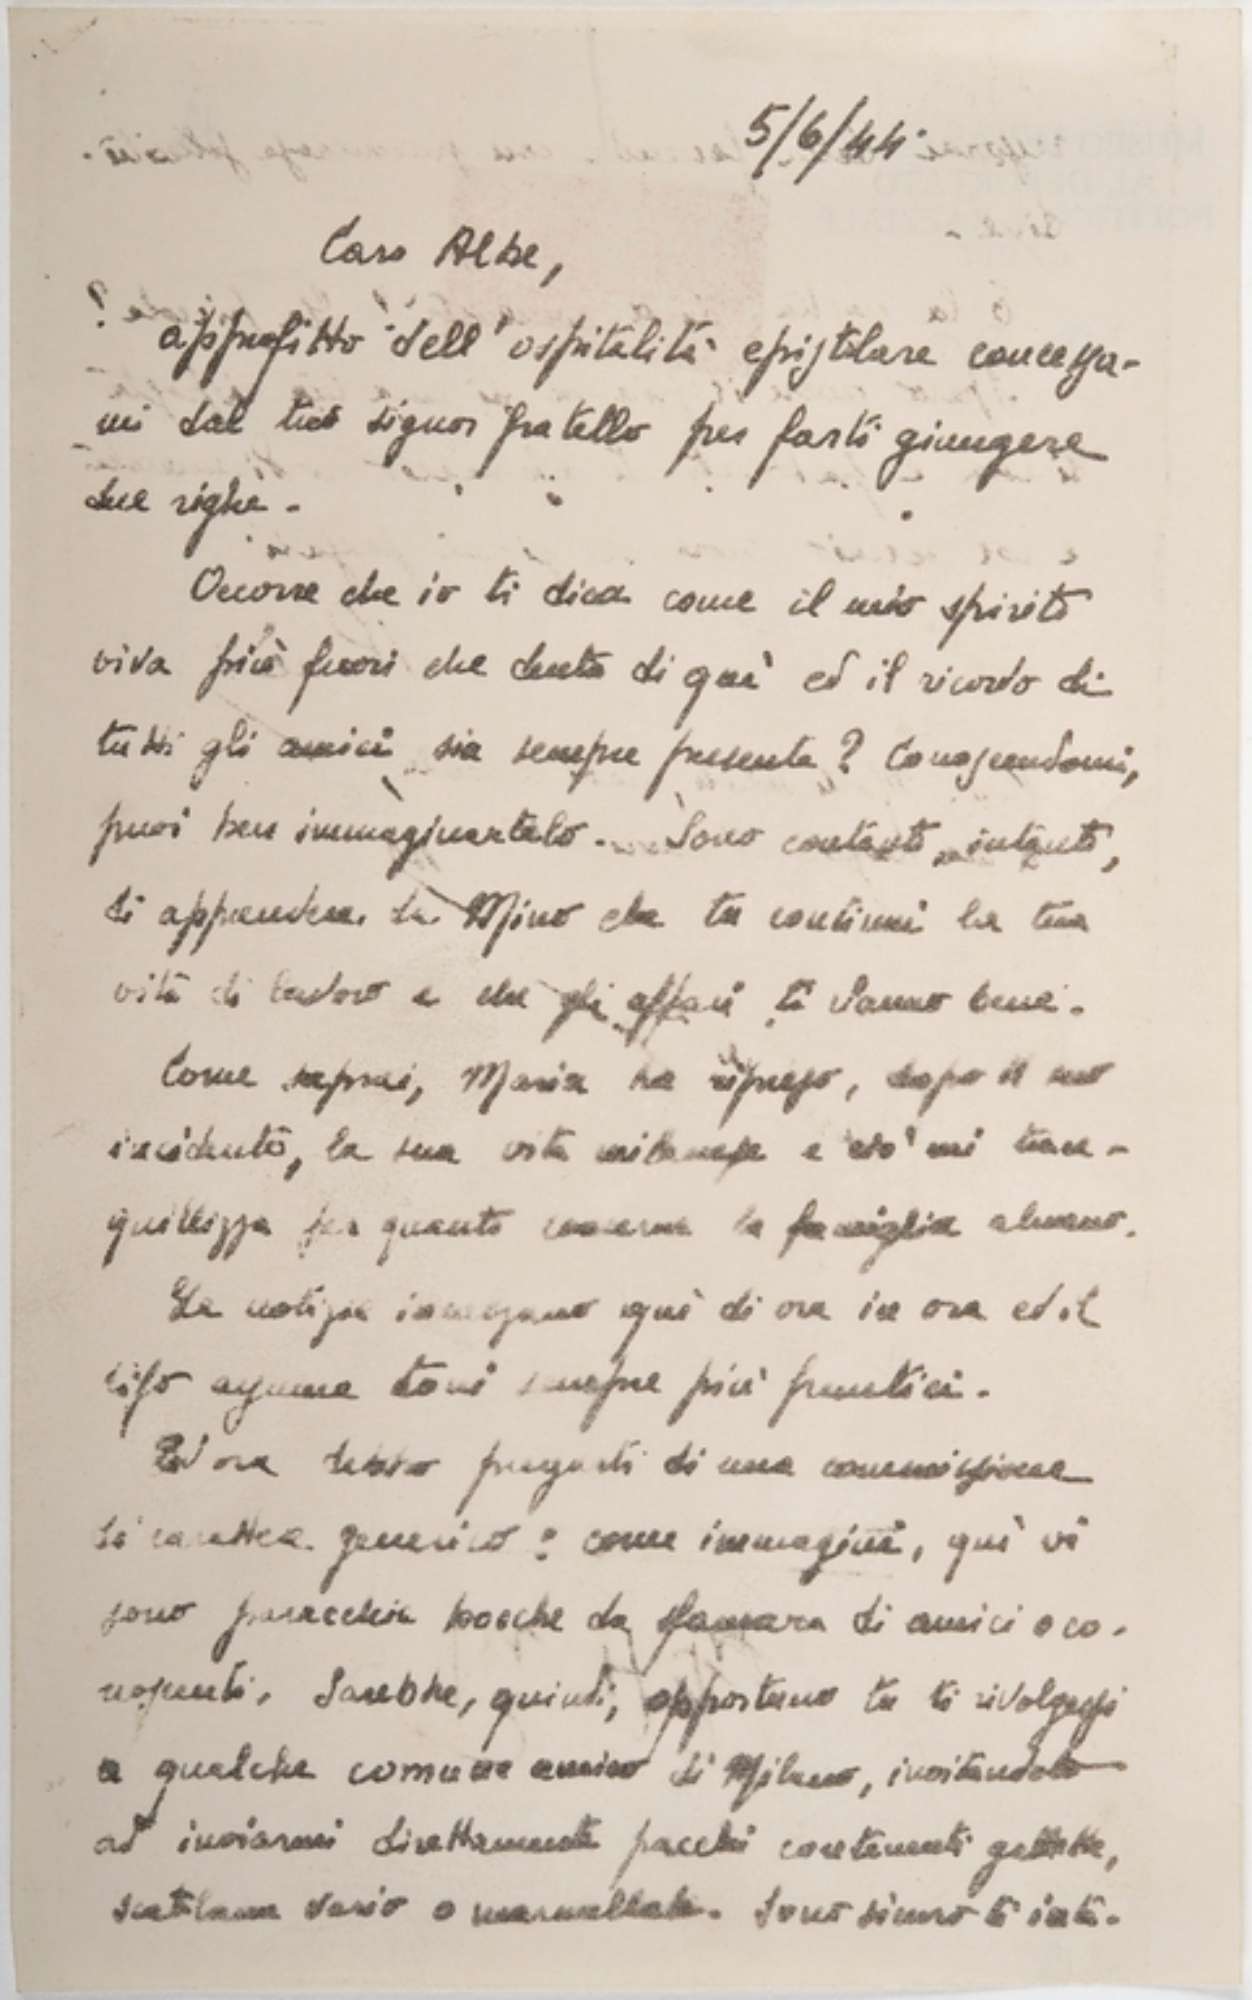 5/6/44
Caro Albe,
approfitto dell'ospitalità epistolare concessa-
mi dal tuo signor fratello per farti giungere
due righe.
Occorre che io ti dica come il mio spirito
viva più fuori che dentro di quì ed il ricordo di
tutti gli amici sia sempre presente? Conoscendomi,
puoi ben immaginartelo. Sono contento, intanto,
di apprendere da Mino che tu continui la tua
vita di lavoro e che gli affari ti vanno bene.
Come saprai, Maria ha ripreso, dopo il suo
incidente, la sua vita milanese e ciò mi tran-
quillizza per quanto concerne la famiglia almeno.
Le notizie incalzano quì di ora in ora ed il
tifo assume toni sempre più frenetici.
Ed ora debbo pregarti di una commissione
di carattere generico: come immagini, quì vi
sono parecchie bocche da sfamare di amici o co-
noscenti. Sarebbe, quindi, opportuno tu ti rivolgessi
a qualche comune amico di Milano, invitandolo
ad inviarmi direttamente pacchi contenenti gallette,
scatolame vario o marmellate. Sono sicuro ti inte-